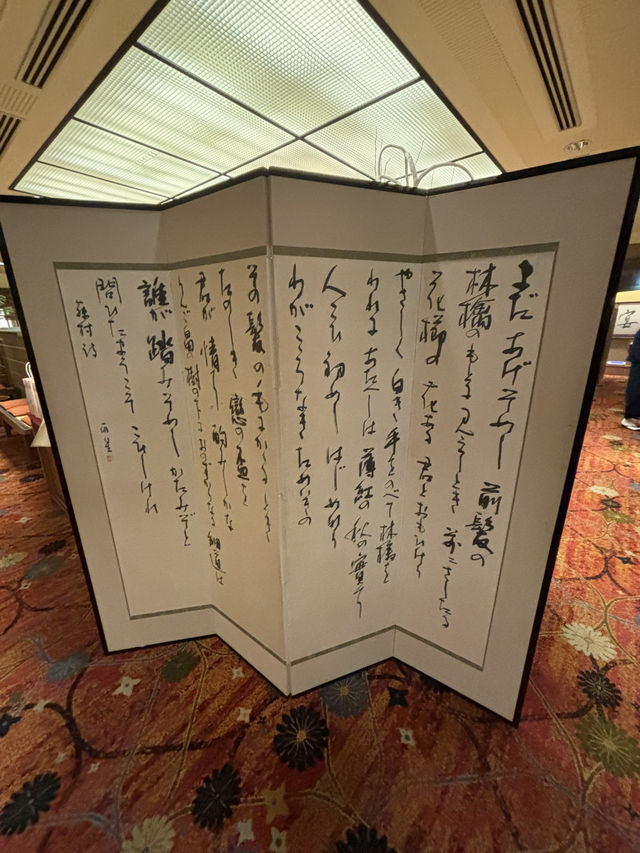 まだ あげそめし 前髪の
林檎のもとに 見えしとき 前にさしたる
花櫛の 花ある 君とおもひけり
やさしく 白き 手をのべて 林檎を
われに あたへしは 薄紅の 秋の實に
人こひ初めし はじめなり
わがこころなき ためいきの
その髪の毛に かかる ときに
たのしき 戀の盃を
君が 情けに 酌みしかな
りんご畠の樹の下に おのづからなる 細道は
誰が 踏みそめし かたみぞと
問ひたまふこそ こひしけれ
藤村 詩
宴